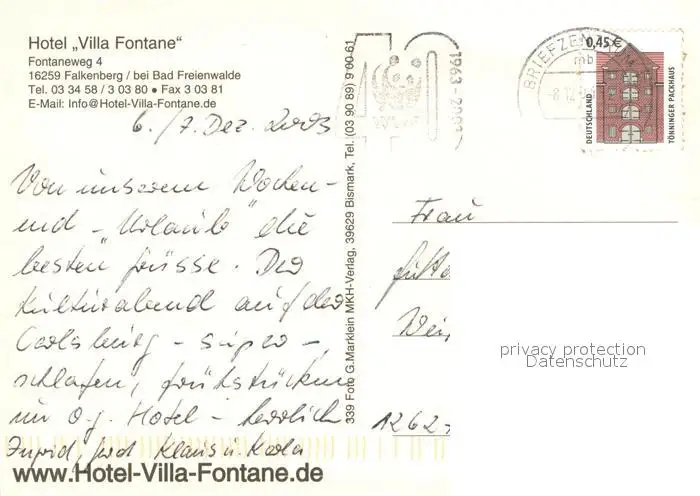 Hotel „Villa Fontane“
Fontaneweg 4
16259 Falkenberg / bei Bad Freienwalde
Tel. 03 34 58 / 3 03 80 • Fax 3 03 81
E-Mail: Info@Hotel-Villa-Fontane.de
6./7. Dez. 2003
Von unserem Wochen-
end - „Urlaub“ die
besten Grüsse. Der
Kulturabend auf der
Carlsburg - super -,
schlafen, frühstücken
im o.g. Hotel - herrlich
Klaus u. Karla
www.Hotel-Villa-Fontane.de
339 Foto G.Marklein MKH-Verlag, 39629 Bismark, Tel. (03 90 89) 9 00 61
40
1963 - 2003
WWF
BRIEFZENTRUM
mb
0,45 €
DEUTSCHLAND
TÖNNINGER PACKHAUS
Frau
Jutta
1262
privacy protection
Datenschutz